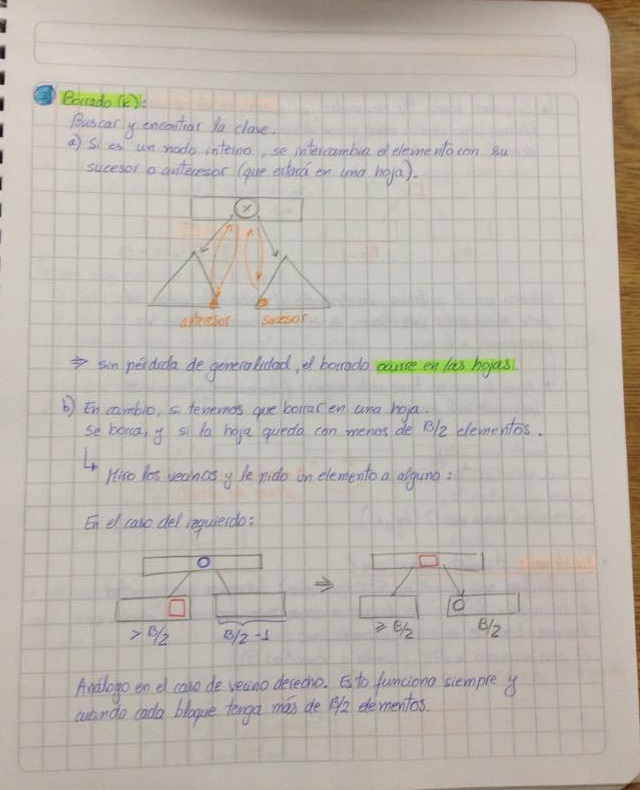 3 Borrado (k):
Buscar y encontrar la clave.
a) Si es un nodo interno, se intercambia el elemento con su
sucesor o antecesor (que estará en una hoja).
x
antecesor sucesor
⇒ sin pérdida de generalidad, el borrado ocurre en las hojas.
b) En cambio, si tenemos que borrar en una hoja.
se borra, y si la hoja queda con menos de B/2 elementos.
↳ Miro los vecinos y le pido un elemento a alguno:
En el caso del izquierdo:
⇒
> B/2 B/2 -1 ≥ B/2 B/2
Análogo en el caso de vecino derecho. Esto funciona siempre y
cuando cada bloque tenga más de B/2 elementos.